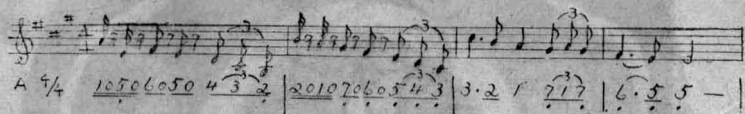 3 3 3
A 4/4 10506050 4 3 2 | 201070605 4 3 | 3·2 1 7 1 7 | 6·5 5 —